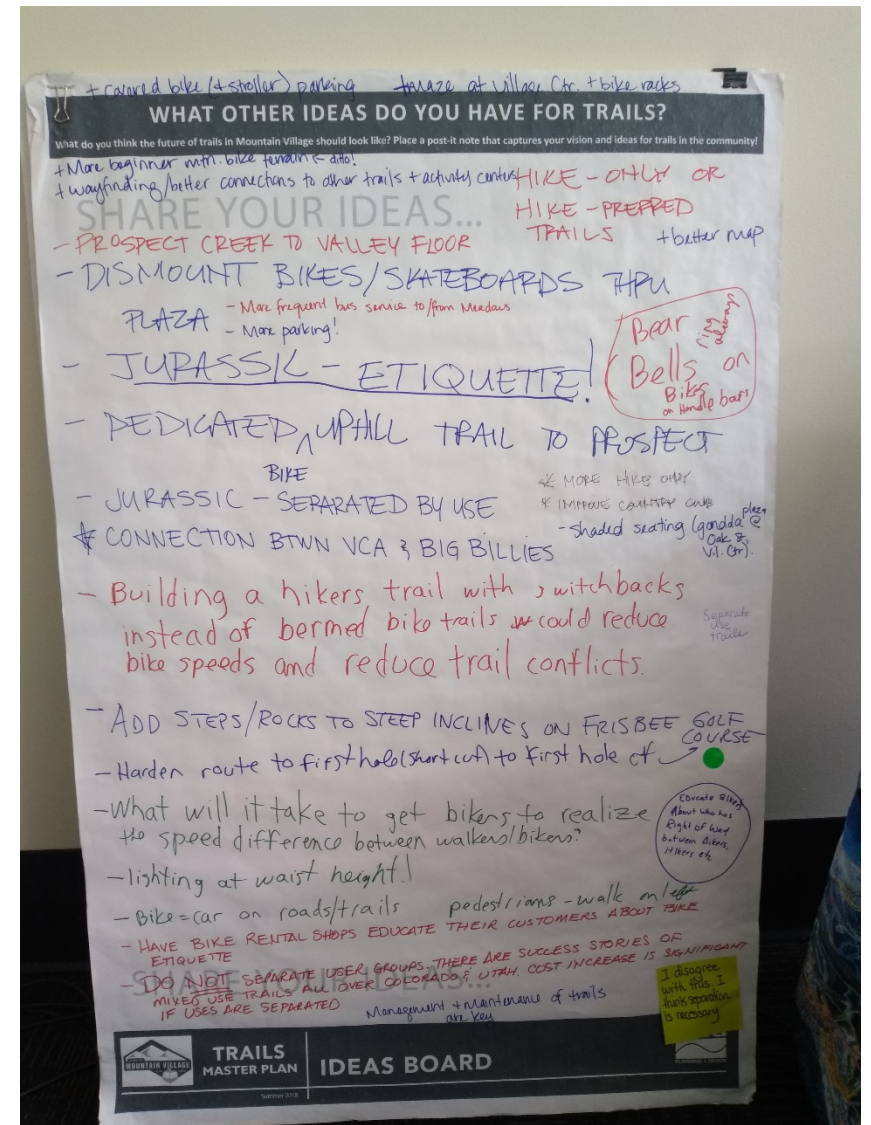 + covered bike (+ stroller) parking
+maze at Village Ctr. + bike racks
WHAT OTHER IDEAS DO YOU HAVE FOR TRAILS?
What do you think the future of trails in Mountain Village should look like? Place a post-it note that captures your vision and ideas for trails in the community!
+More beginner mtn. bike terrain ← ditto!
+ wayfinding/better connections to other trails + activity centers
HIKE - ONLY OR
HIKE - PREFRRED
TRAILS
+better map
SHARE YOUR IDEAS...
- PROSPECT CREEK TO VALLEY FLOOR
- DISMOUNT BIKES/SKATEBOARDS THRU
PLAZA
- More frequent bus service to/from Meadows
- More parking!
Bear
Bells on
Bikes
on Handle bars
ring always
- JURASSIC - ETIQUETTE!
- DEDICATED ^ UPHILL TRAIL TO PROSPECT
BIKE
- JURASSIC - SEPARATED BY USE
* MORE HIKE ONLY
* IMPROVE COUNTRY CLUB
- shaded seating (gondola plaza @
Oak St,
Vil. Ctr).
* CONNECTION BTWN VCA & BIG BILLIES
- Building a hikers trail with switchbacks
instead of bermed bike trails could reduce
bike speeds and reduce trail conflicts.
Separate
use
trails
- ADD STEPS/ROCKS TO STEEP INCLINES ON FRISBEE GOLF
COURSE
- Harden route to first hole (short cut) to first hole of
- What will it take to get bikers to realize
the speed difference between walkers/bikers?
Educate Bikers
About who has
Right of Way
between Bikers,
Hikers etc
- lighting at waist height!
- Bike = car on roads/trails
pedestrians - walk on left
- HAVE BIKE RENTAL SHOPS EDUCATE THEIR CUSTOMERS ABOUT BIKE
ETIQUETTE
SHARE YOUR IDEAS...
- DO NOT SEPARATE USER GROUPS. THERE ARE SUCCESS STORIES OF
MIXED USE TRAILS ALL OVER COLORADO & UTAH. COST INCREASE IS SIGNIFICANT
IF USES ARE SEPARATED
I disagree
with this. I
think separation
is necessary
Management + Maintenance of trails
are key
MOUNTAIN VILLAGE
TRAILS
MASTER PLAN
IDEAS BOARD